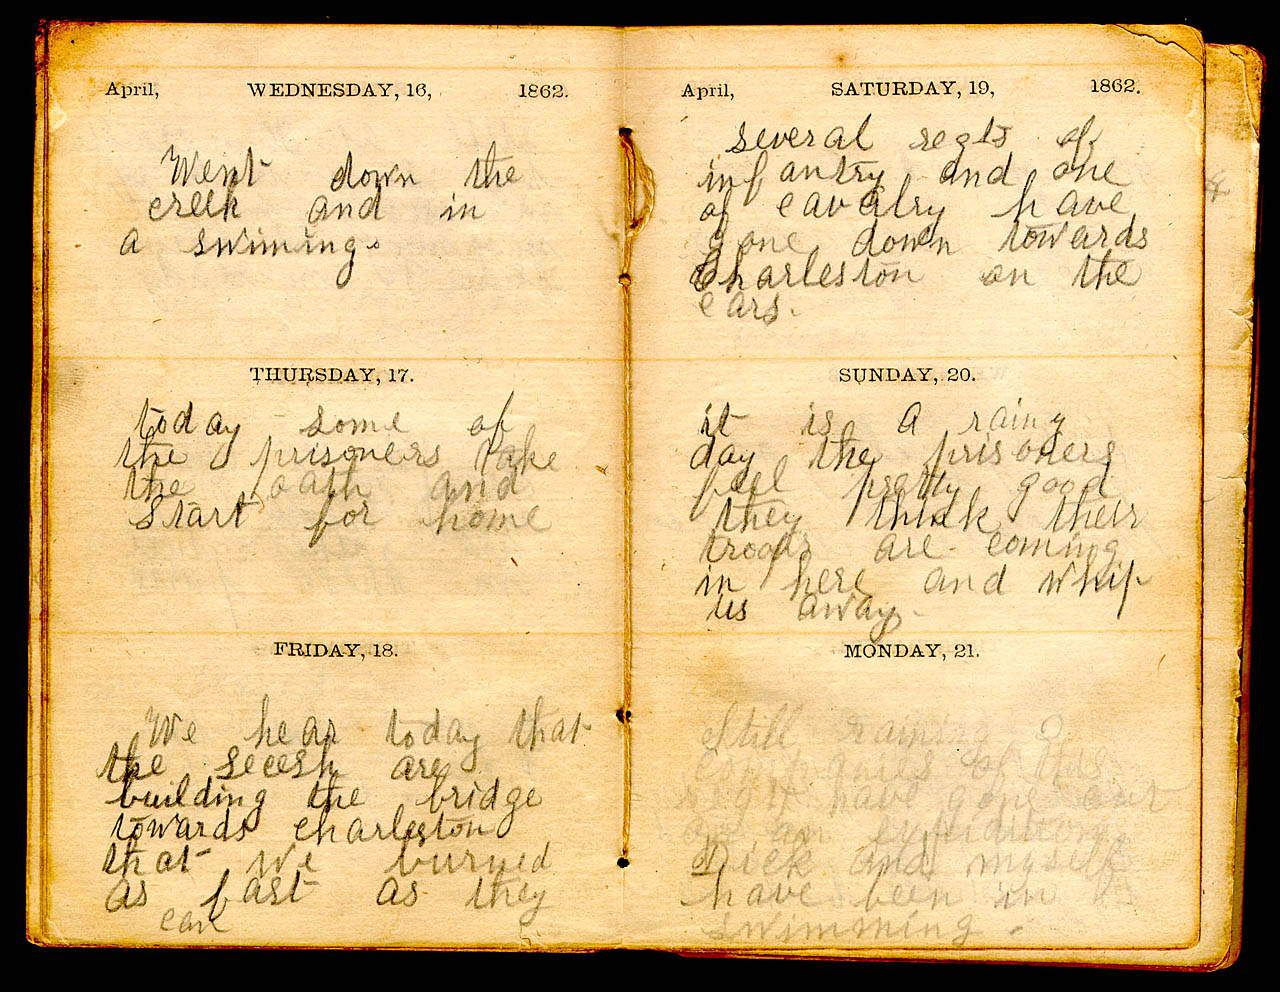 April, WEDNESDAY, 16, 1862.
Went down the
creek and in
a swiming.
THURSDAY, 17.
today some of
the prisoners take
the oath and
start for home
FRIDAY, 18.
We hear today that
the secesh are
building the bridge
towards charleston
that we burned
as fast as they
can
April, SATURDAY, 19, 1862.
several regts of
infantry and one
of cavalry have
gone down towards
Charleston on the
cars.
SUNDAY, 20.
it is a rainy
day the prisoners
feel pretty good
they think their
troops are coming
in here and whip
us away.
MONDAY, 21.
Still raining 2
companies of this
regt have gone out
on an expidition
Dick and myself
have been in
swimming.